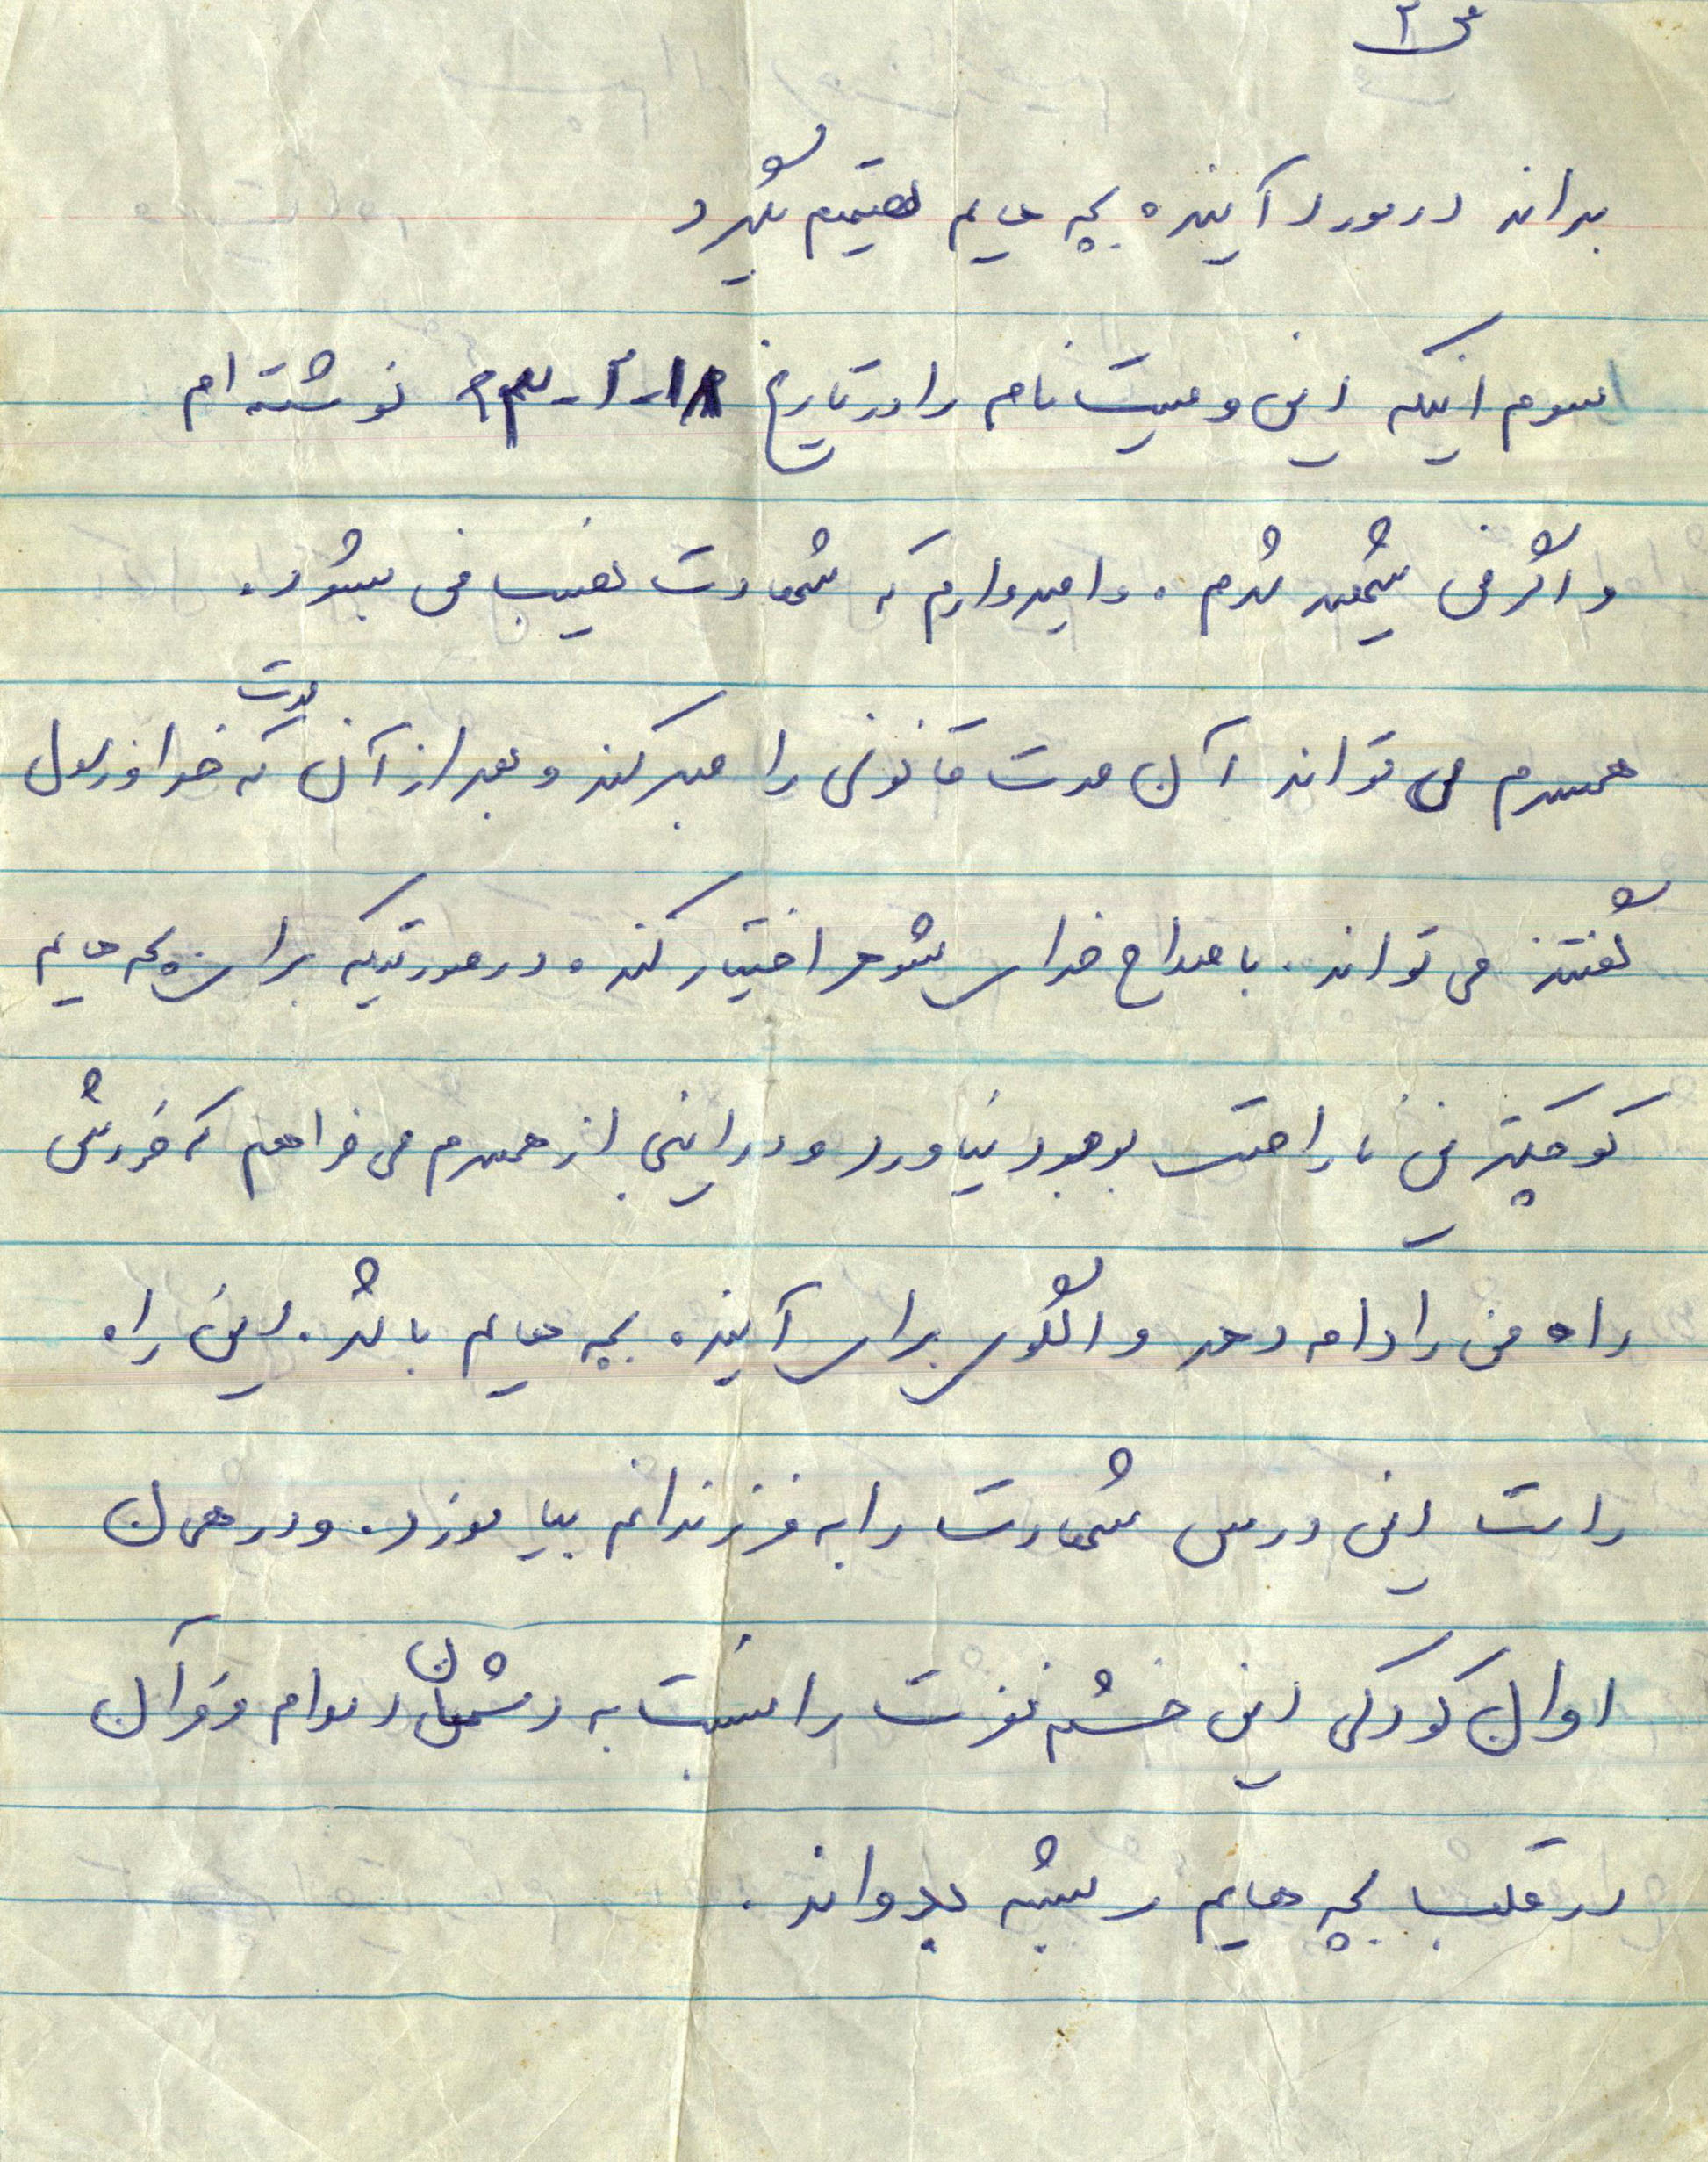 ص ۲
بداند در مورد آینده بچه هایم تصمیم بگیرد
سوم اینکه این وصیت نامه را در تاریخ نوشته ام
و اگر من شهید شدم . و امیدوارم که شهادت نصیب من بشود .
همسرم می تواند آن مدت قانونی را صبر کند و بعد از آن مدت که خدا و رسول
گفتند می تواند . با صلاح خدا شوهر اختیار کند . در صورتیکه برای بچه هایم
کوچکترین ناراحتی بوجود نیاورد و در اینجا از همسرم می خواهم که خودش
راه من را ادامه دهد و الگوی برای آینده بچه هایم باشد . این راه
راست این درس شهادت را به فرزندانم بیاموزد . و در همان
اوال کودکی این خشم نفرت را نسبت به دشمنان اسلام و قرآن
در قلب بچه هایم ریشه بدواند .